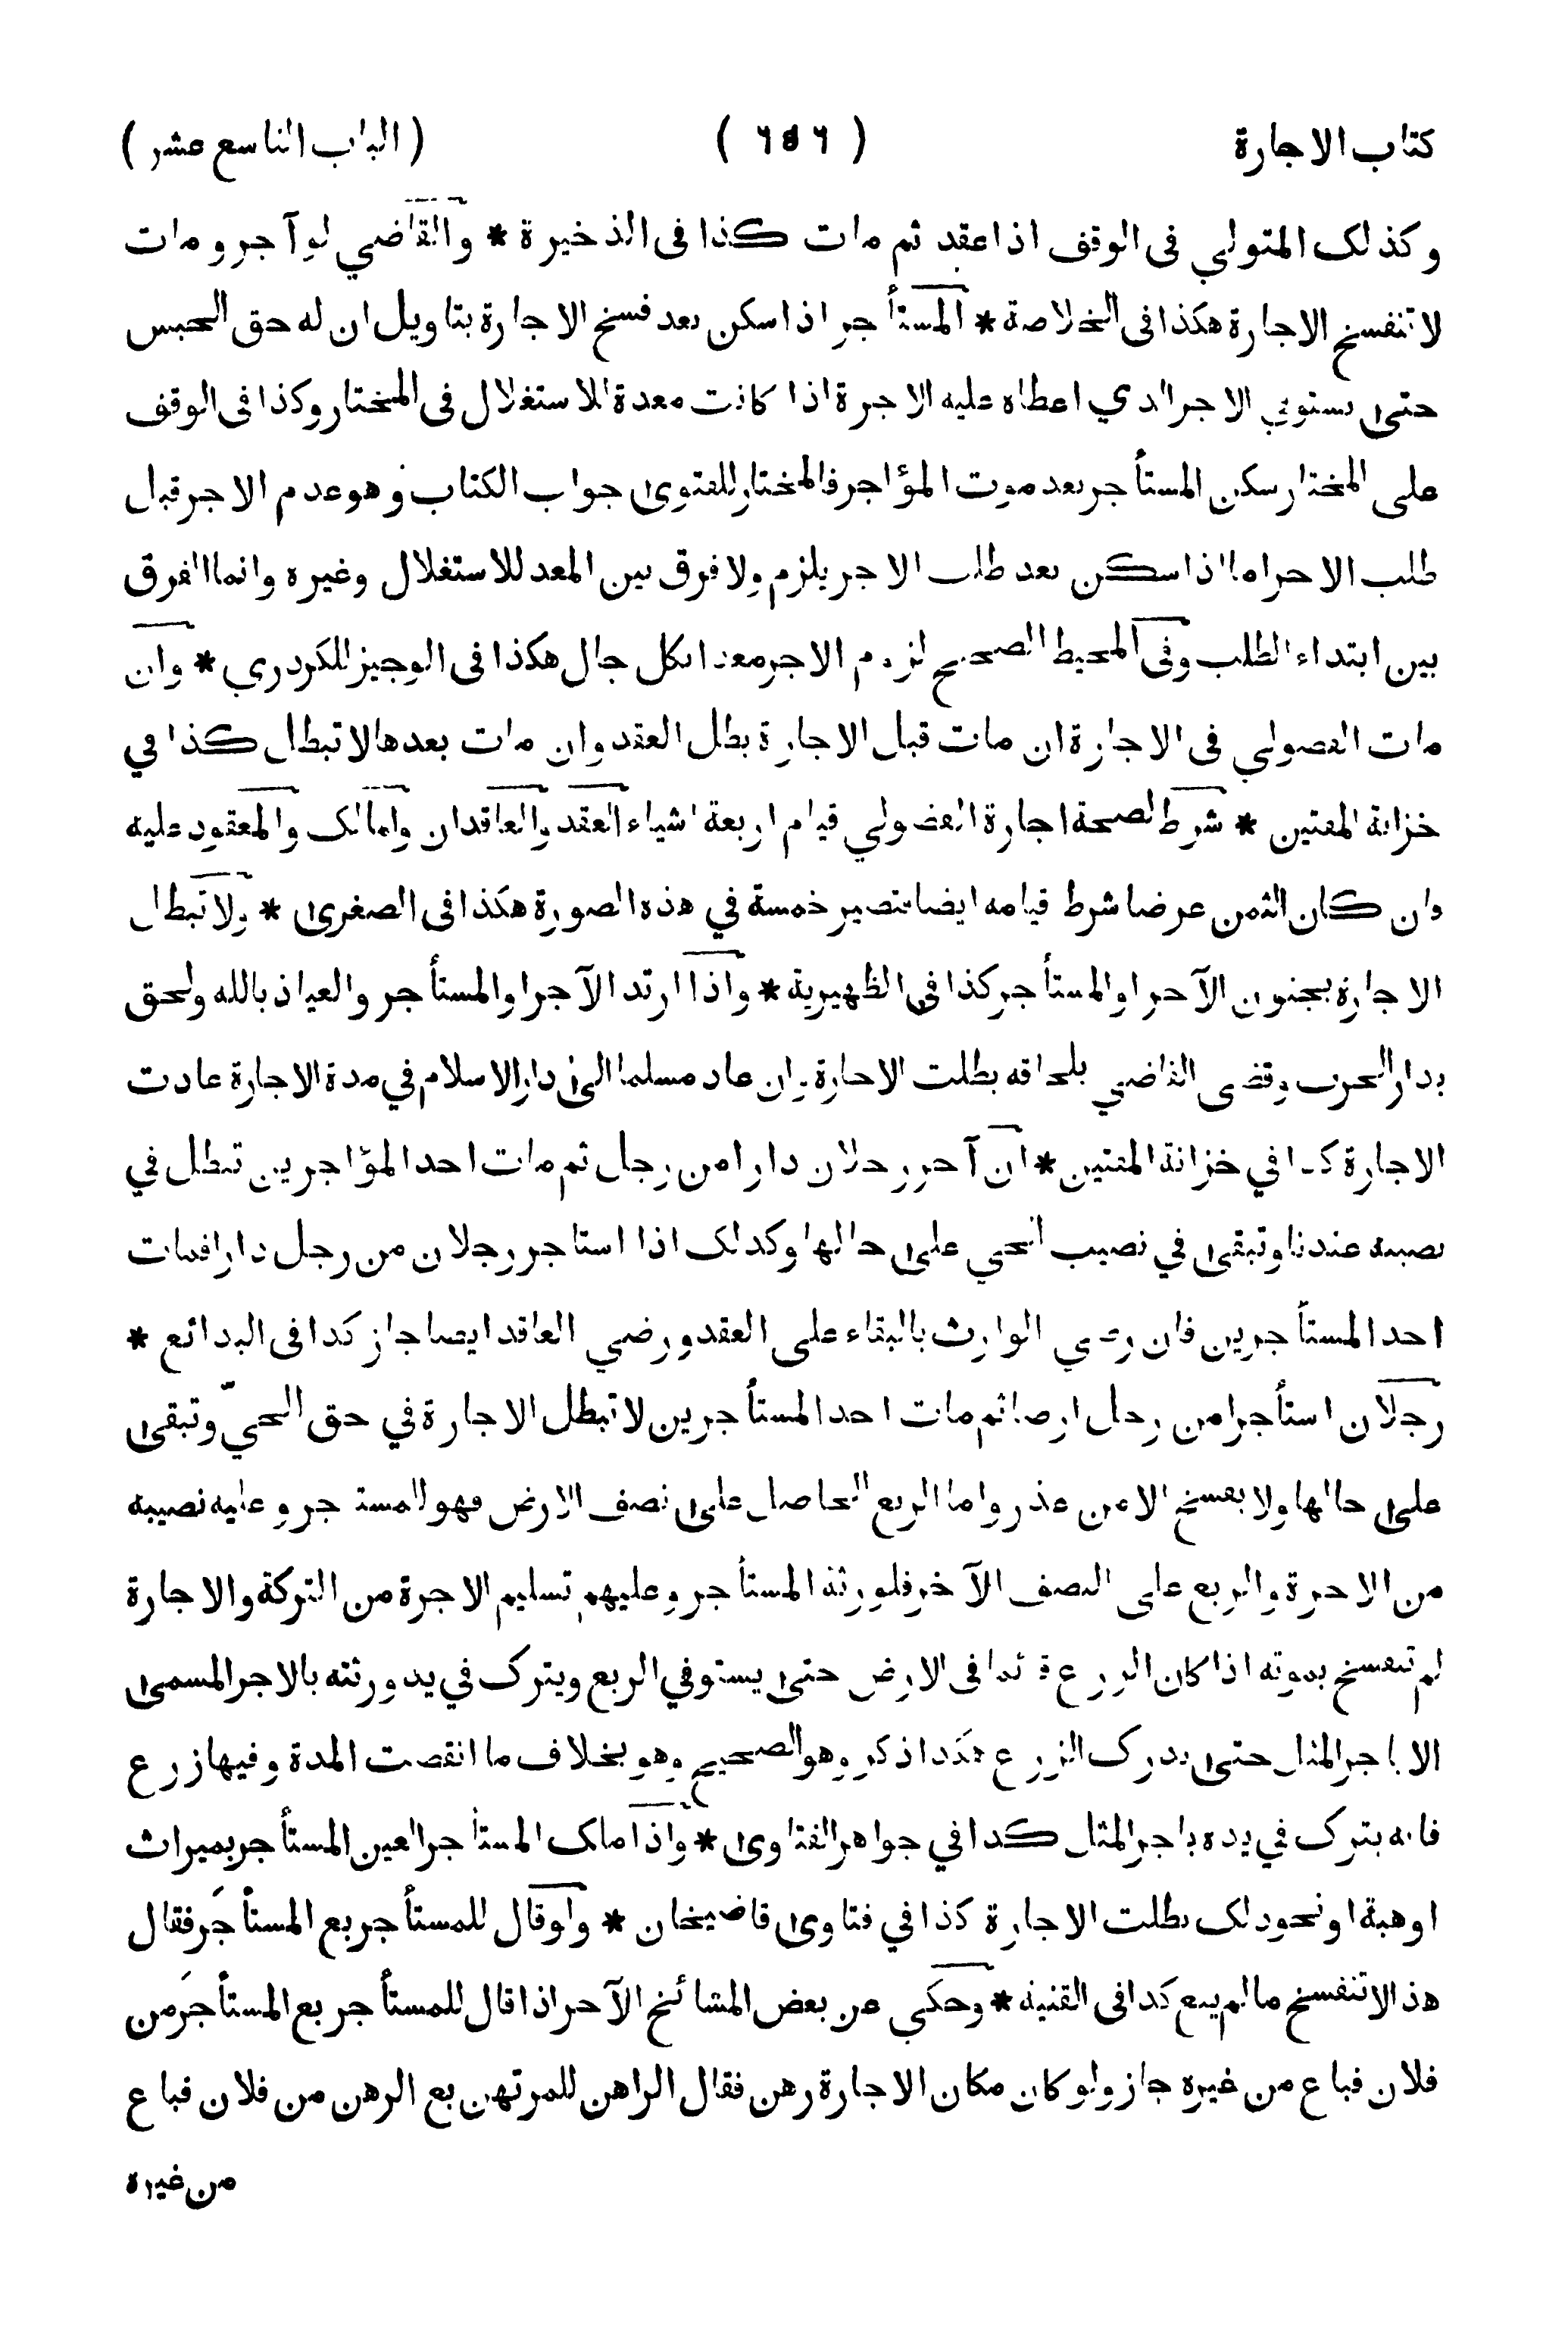 كتاب الاجارة ( ٦٥٦ ) ( الباب التاسع عشر )
وكذلك المتولي في الوقف اذا عقد ثم مات كذا في الذخيرة * والقاضي لو آجر ومات
لا تنفسخ الاجارة هكذا في الخلاصة * المستأجر اذا سكن بعد فسخ الاجارة بتاويل ان له حق الحبس
حتى يستوفي الاجر الذي اعطاه عليه الاجرة اذا كانت معدة للاستغلال في المختار وكذا في الوقف
على المختار سكن المستأجر بعد موت المؤاجر فالمختار للفتوى جواب الكتاب وهو عدم الاجر قبل
طلب الاجر اما اذا سكن بعد طلب الاجر يلزم ولا فرق بين المعد للاستغلال وغيره وانما الفرق
بين ابتداء الطلب وفي المحيط الصحيح لزوم الاجر معدا بكل حال هكذا في الوجيز للكردري * وان
مات الفضولي في الاجارة ان مات قبل الاجارة بطل العقد وان مات بعدها لا تبطل كذا في
خزانة المفتين * شرط لصحة اجارة الفضولي قيام اربعة اشياء العقد والعاقدان والمالك والمعقود عليه
وان كان الثمن عرضا شرط قيامه ايضا فتصير خمسة في هذه الصورة هكذا في الصغرى * ولا تبطل
الاجارة بجنون الآجر او المستأجر كذا في الظهيرية * واذا ارتد الآجر او المستأجر والعياذ بالله ولحق
بدار الحرب وقضى القاضي بلحاقه بطلت الاجارة وان عاد مسلما الى دار الاسلام في مدة الاجارة عادت
الاجارة كذا في خزانة المفتين * ان آجر رجلان دارا من رجل ثم مات احد المؤاجرين تبطل في
نصيبه عندنا وتبقى في نصيب الحي على حالها وكذلك اذا استاجر رجلان من رجل دارا فمات
احد المستأجرين فان رضي الوارث بالبقاء على العقد ورضي العاقد ايضا جاز كذا في البدائع *
رجلان استأجرا من رجل ارضا ثم مات احد المستأجرين لا تبطل الاجارة في حق الحيّ وتبقى
على حالها ولا يفسخ الا من عذر واما الربع الحاصل على نصف الارض فهو للمستأجر وعليه نصيبه
من الاجرة والربع على النصف الآخر فلورثة المستأجر وعليهم تسليم الاجرة من التركة والاجارة
لم تنفسخ بموته اذا كان الزرع قائما في الارض حتى يستوفي الربع ويترك في يد ورثته بالاجر المسمى
الا باجر المثل حتى يدرك الزرع هكذا ذكر وهو الصحيح وهو بخلاف ما انقضت المدة وفيها زرع
فانه يترك في يده باجر المثل كذا في جواهر الفتاوى * واذا ملك المستأجر العين المستأجر بميراث
او هبة او نحو ذلك بطلت الاجارة كذا في فتاوى قاضيخان * ولو قال للمستأجر بع المستأجَر فقال
هذا لا تنفسخ ما لم يبع كذا في القنية * وحكي عن بعض المشائخ الآجر اذا قال للمستأجر بع المستأجَر من
فلان فباع من غيره جاز ولو كان مكان الاجارة رهن فقال الراهن للمرتهن بع الرهن من فلان فباع
من غيره